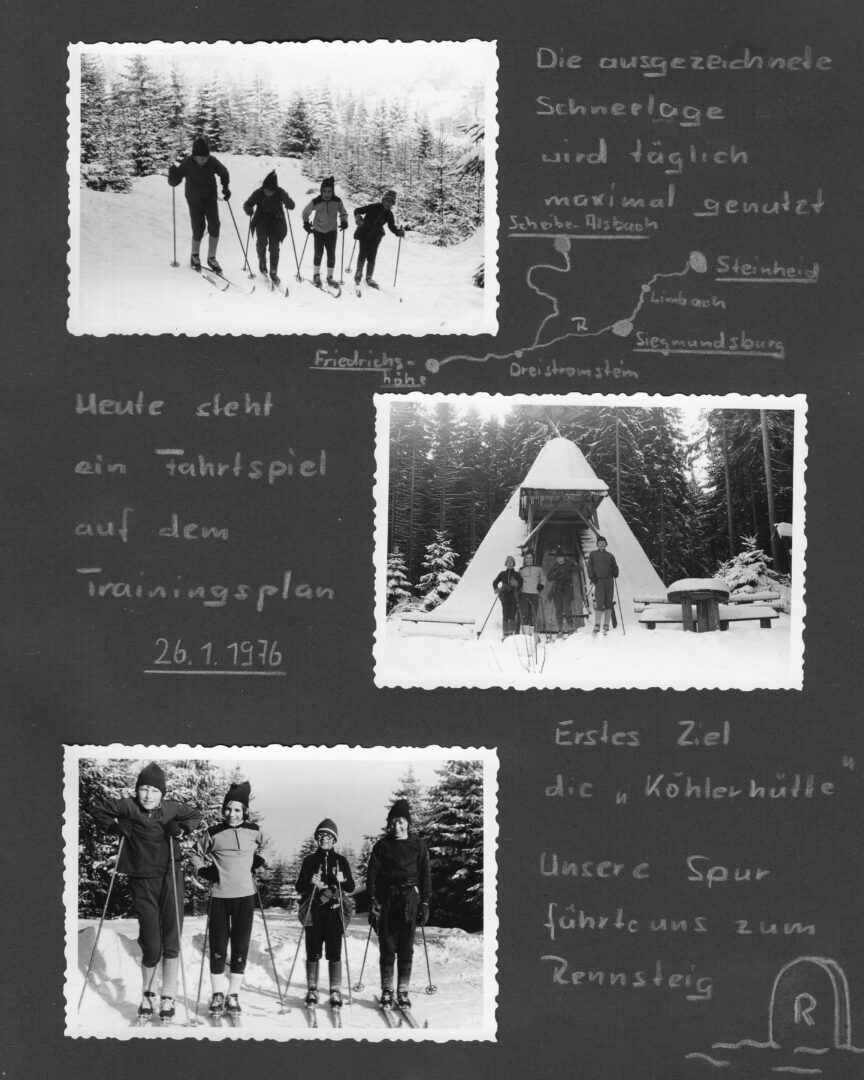 Die ausgezeichnete
Schneelage
wird täglich
maximal genutzt
Scheibe-Alsbach
Steinheid
Limbach
R
Siegmundsburg
Friedrichs-
höhe
Dreistromstein
Heute steht
ein Fahrtspiel
auf dem
Trainingsplan
26.1.1976
Erstes Ziel
die „Köhlerhütte"
Unsere Spur
führte uns zum
Rennsteig
R